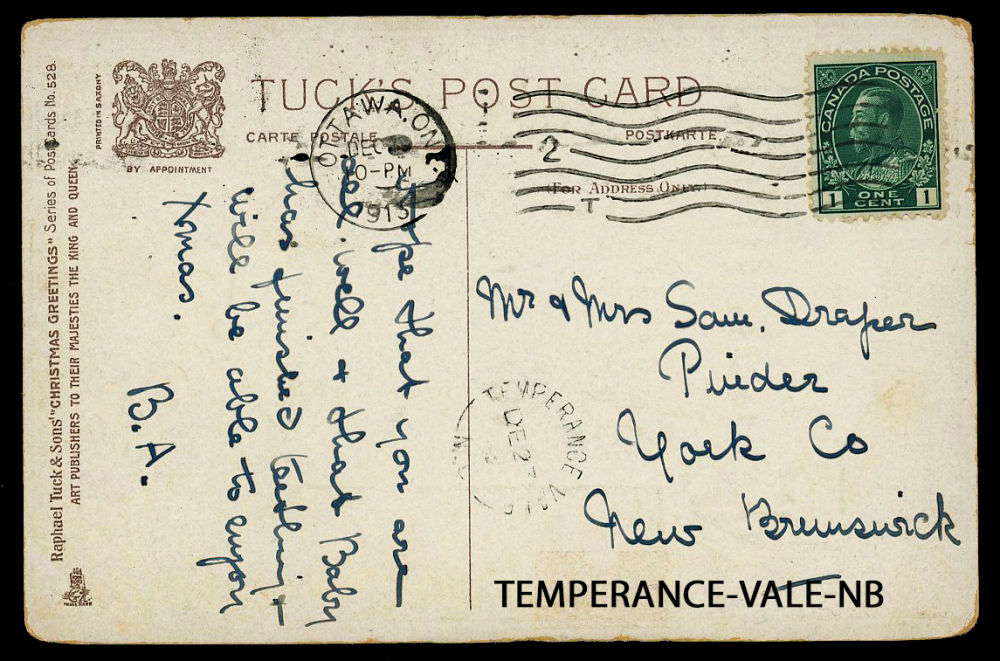 TUCK'S POST CARD
CARTE POSTALE
POSTKARTE
(FOR ADDRESS ONLY.)
BY APPOINTMENT
PRINTED IN SAXONY
Raphael Tuck & Sons' "CHRISTMAS GREETINGS" Series of Postcards No. 528.
ART PUBLISHERS TO THEIR MAJESTIES THE KING AND QUEEN.
OTTAWA. ONT.
DEC
0-PM
1913
2
T
CANADA POSTAGE
1 1
ONE
CENT
Hope that you are
all well & that Baby
has finished teething &
will be able to enjoy
Xmas.
B.A.
Mr & Mrs Sam. Draper
Pinder
York Co
New Brunswick
TEMPERANCE VALE
DE 27
N.B.
TEMPERANCE-VALE-NB